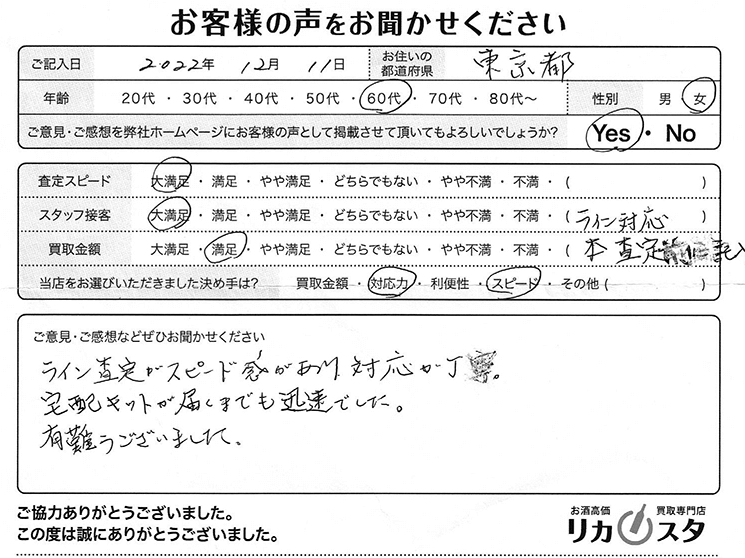 お客様の声をお聞かせください
ご記入日 2022年 12月 11日 お住いの都道府県 東京都
年齢 20代 ・ 30代 ・ 40代 ・ 50代 ・ 60代 ・ 70代 ・ 80代～ 性別 男 ・ 女
ご意見・ご感想を弊社ホームページにお客様の声として掲載させて頂いてもよろしいでしょうか? Yes ・ No
査定スピード 大満足 ・ 満足 ・ やや満足 ・ どちらでもない ・ やや不満 ・ 不満 ・ ( )
スタッフ接客 大満足 ・ 満足 ・ やや満足 ・ どちらでもない ・ やや不満 ・ 不満 ・ ( ライン対応 )
買取金額 大満足 ・ 満足 ・ やや満足 ・ どちらでもない ・ やや不満 ・ 不満 ・ ( 本査定前に記入
当店をお選びいただきました決め手は? 買取金額 ・ 対応力 ・ 利便性 ・ スピード ・ その他 ( )
ご意見・ご感想などぜひお聞かせください
ライン査定がスピード感があり対応が丁寧。
宅配キットが届くまでも迅速でした。
有難うございました。
ご協力ありがとうございました。
この度は誠にありがとうございました。
お酒高価 買取専門店
リカスタ